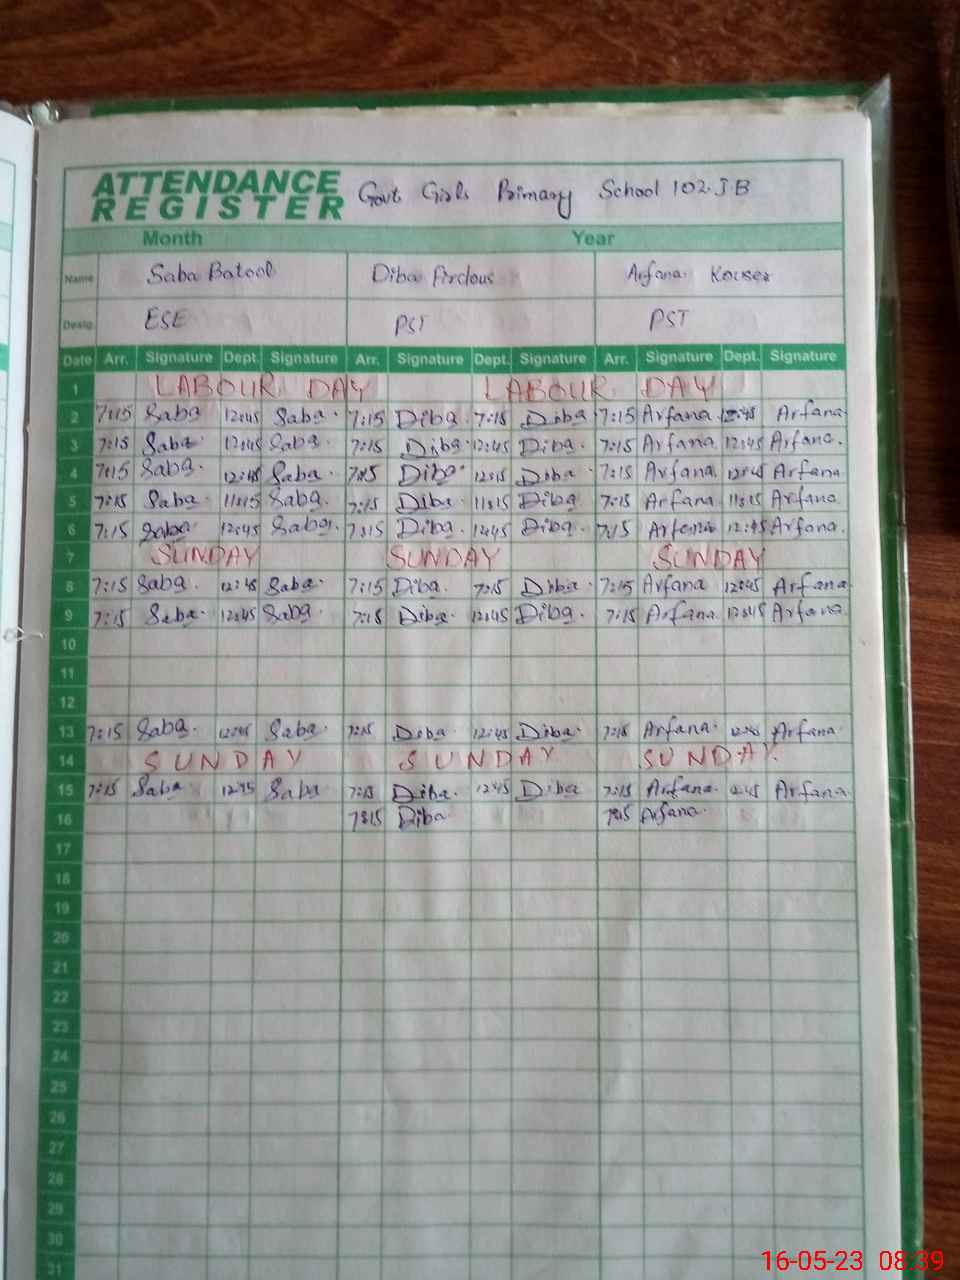 ATTENDANCE REGISTER Govt Girls Primary School 102.JB
Month Year
Name Saba Batool Diba Firdous Arfana Kouser
Desig. ESE PST PST
Date Arr. Signature Dept. Signature Arr. Signature Dept. Signature Arr. Signature Dept. Signature
1 LABOUR DAY LABOUR DAY
2 7:15 Saba 12:45 Saba. 7:15 Diba 7:15 Diba 7:15 Arfana 12:45 Arfana
3 7:15 Saba. 12:45 Saba. 7:15 Diba. 12:45 Diba. 7:15 Arfana 12:45 Arfana.
4 7:15 Saba. 12:45 Saba. 7:15 Diba. 12:15 Diba. 7:15 Arfana 12:45 Arfana
5 7:15 Saba. 11:15 Saba. 7:15 Diba. 11:15 Diba 7:15 Arfana 11:15 Arfana
6 7:15 Saba 12:45 Saba. 7:15 Diba. 12:45 Diba. 7:15 Arfana 12:45 Arfana.
7 SUNDAY SUNDAY SUNDAY
8 7:15 Saba. 12:45 Saba. 7:15 Diba. 7:15 Diba. 7:15 Arfana 12:45 Arfana.
9 7:15 Saba. 12:45 Saba. 7:15 Diba. 12:45 Diba. 7:15 Arfana 12:45 Arfana.
10
11
12
13 7:15 Saba. 12:45 Saba. 7:15 Diba 12:45 Diba. 7:15 Arfana. 12:45 Arfana.
14 SUNDAY SUNDAY SUNDAY.
15 7:15 Saba 12:45 Saba 7:15 Diba. 12:45 Diba 7:15 Arfana. 12:45 Arfana.
16 7:15 Diba 7:15 Arfana.
17
18
19
20
21
22
23
24
25
26
27
28
29
30
31
16-05-23 08:39